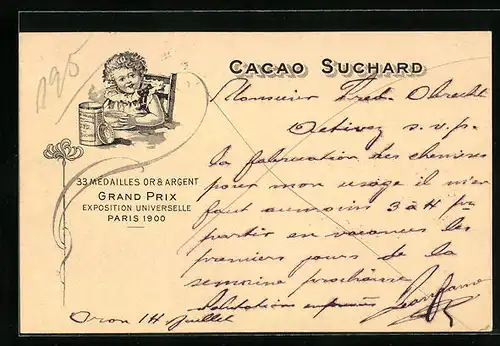 195
CACAO SUCHARD
33 MEDAILLES OR & ARGENT
GRAND PRIX
EXPOSITION UNIVERSELLE
PARIS 1900
Monsieur Fred. Obrecht
Activez s.v.p.
la fabrication des chemises
pour mon usage il m'en
faut au moins 3 à 4 pr
partir en vacances les
premiers jours de la
semaine prochaine
salutations empressées
Oron 14 juillet